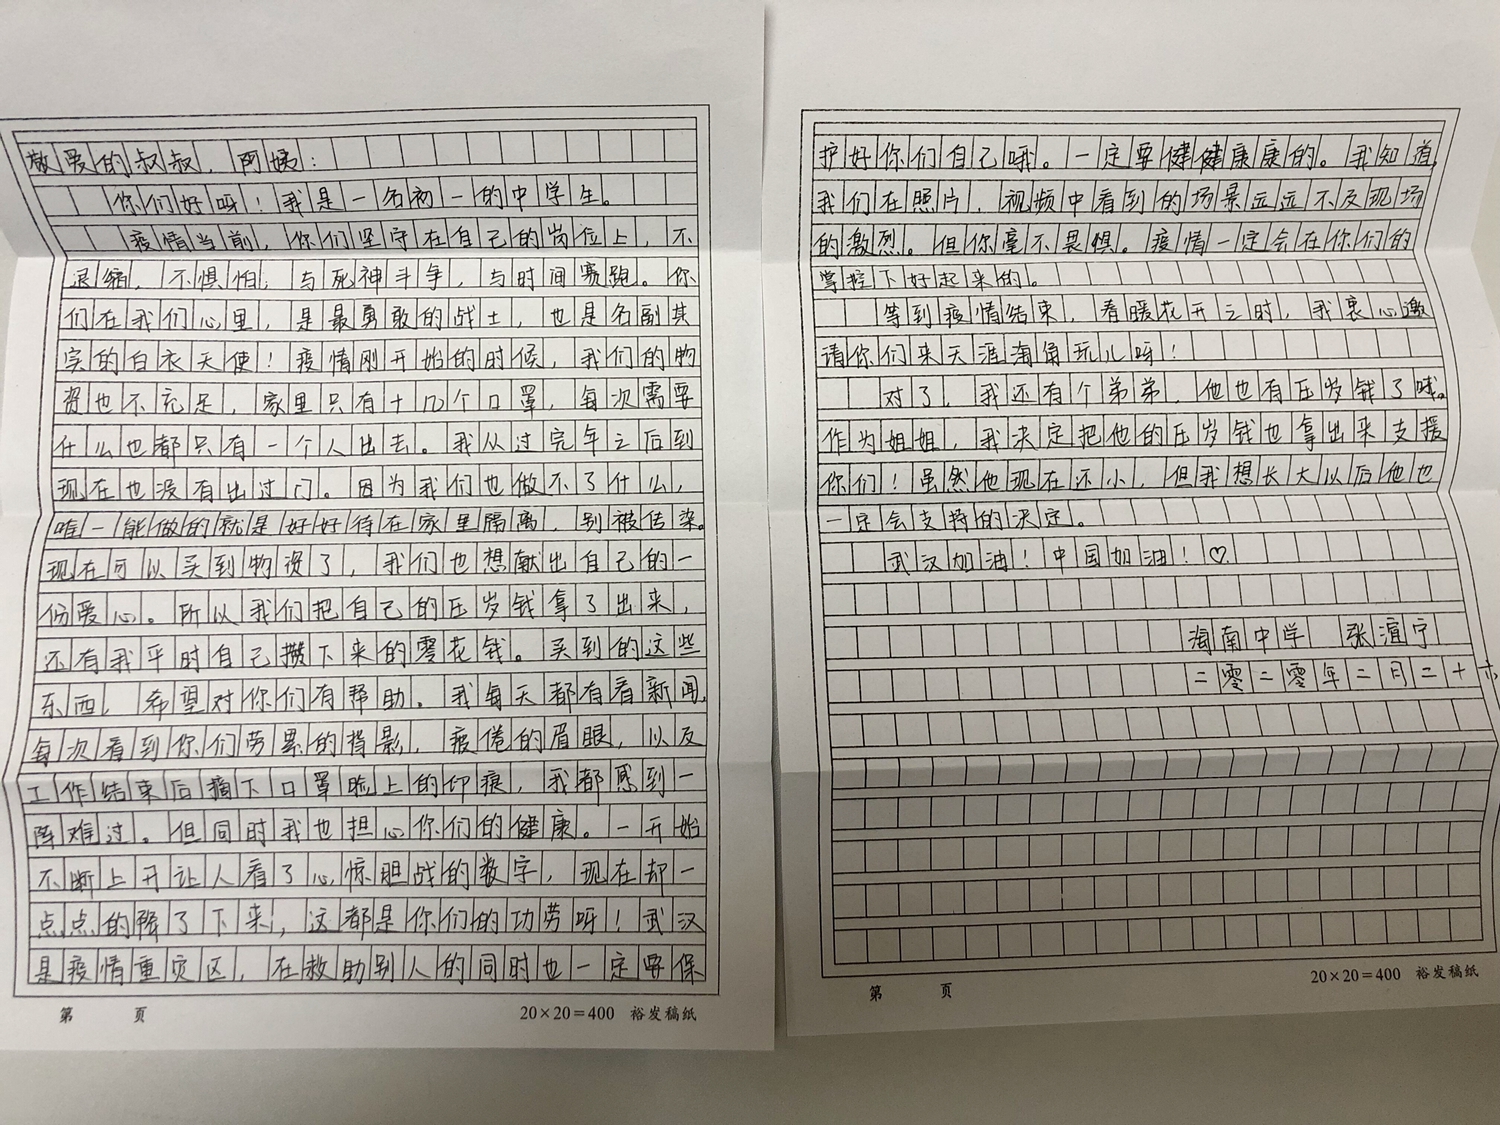 敬爱的叔叔、阿姨：
你们好呀！我是一名初一的中学生。
疫情当前，你们坚守在自己的岗位上，不
退缩，不惧怕，与死神斗争，与时间赛跑。你
们在我们心里，是最勇敢的战士，也是名副其
实的白衣天使！疫情刚开始的时候，我们的物
资也不充足，家里只有十几个口罩，每次需要
什么也都只有一个人出去。我从过完年之后到
现在也没有出过门。因为我们也做不了什么，
唯一能做的就是好好待在家里隔离，别被传染。
现在可以买到物资了，我们也想献出自己的一
份爱心。所以我们把自己的压岁钱拿了出来，
还有我平时自己攒下来的零花钱。买到的这些
东西，希望对你们有帮助。我每天都有看新闻，
每次看到你们劳累的背影，疲倦的眉眼，以及
工作结束后摘下口罩脸上的印痕，我都感到一
阵难过。但同时我也担心你们的健康。一开始
不断上升让人看了心惊胆战的数字，现在却一
点点的降了下来，这都是你们的功劳呀！武汉
是疫情重灾区，在救助别人的同时也一定要保
第 页
20×20=400 裕发稿纸
护好你们自己哦。一定要健健康康的。我知道，
我们在照片、视频中看到的场景远远不及现场
的激烈。但你毫不畏惧。疫情一定会在你们的
掌控下好起来的。
等到疫情结束，春暖花开之时，我衷心邀
请你们来天涯海角玩儿呀！
对了，我还有个弟弟，他也有压岁钱了哦。
作为姐姐，我决定把他的压岁钱也拿出来支援
你们！虽然他现在还小，但我想长大以后他也
一定会支持的决定。
武汉加油！中国加油！♡
海南中学 张滇宁
二零二零年二月二十六
第 页
20×20=400 裕发稿纸